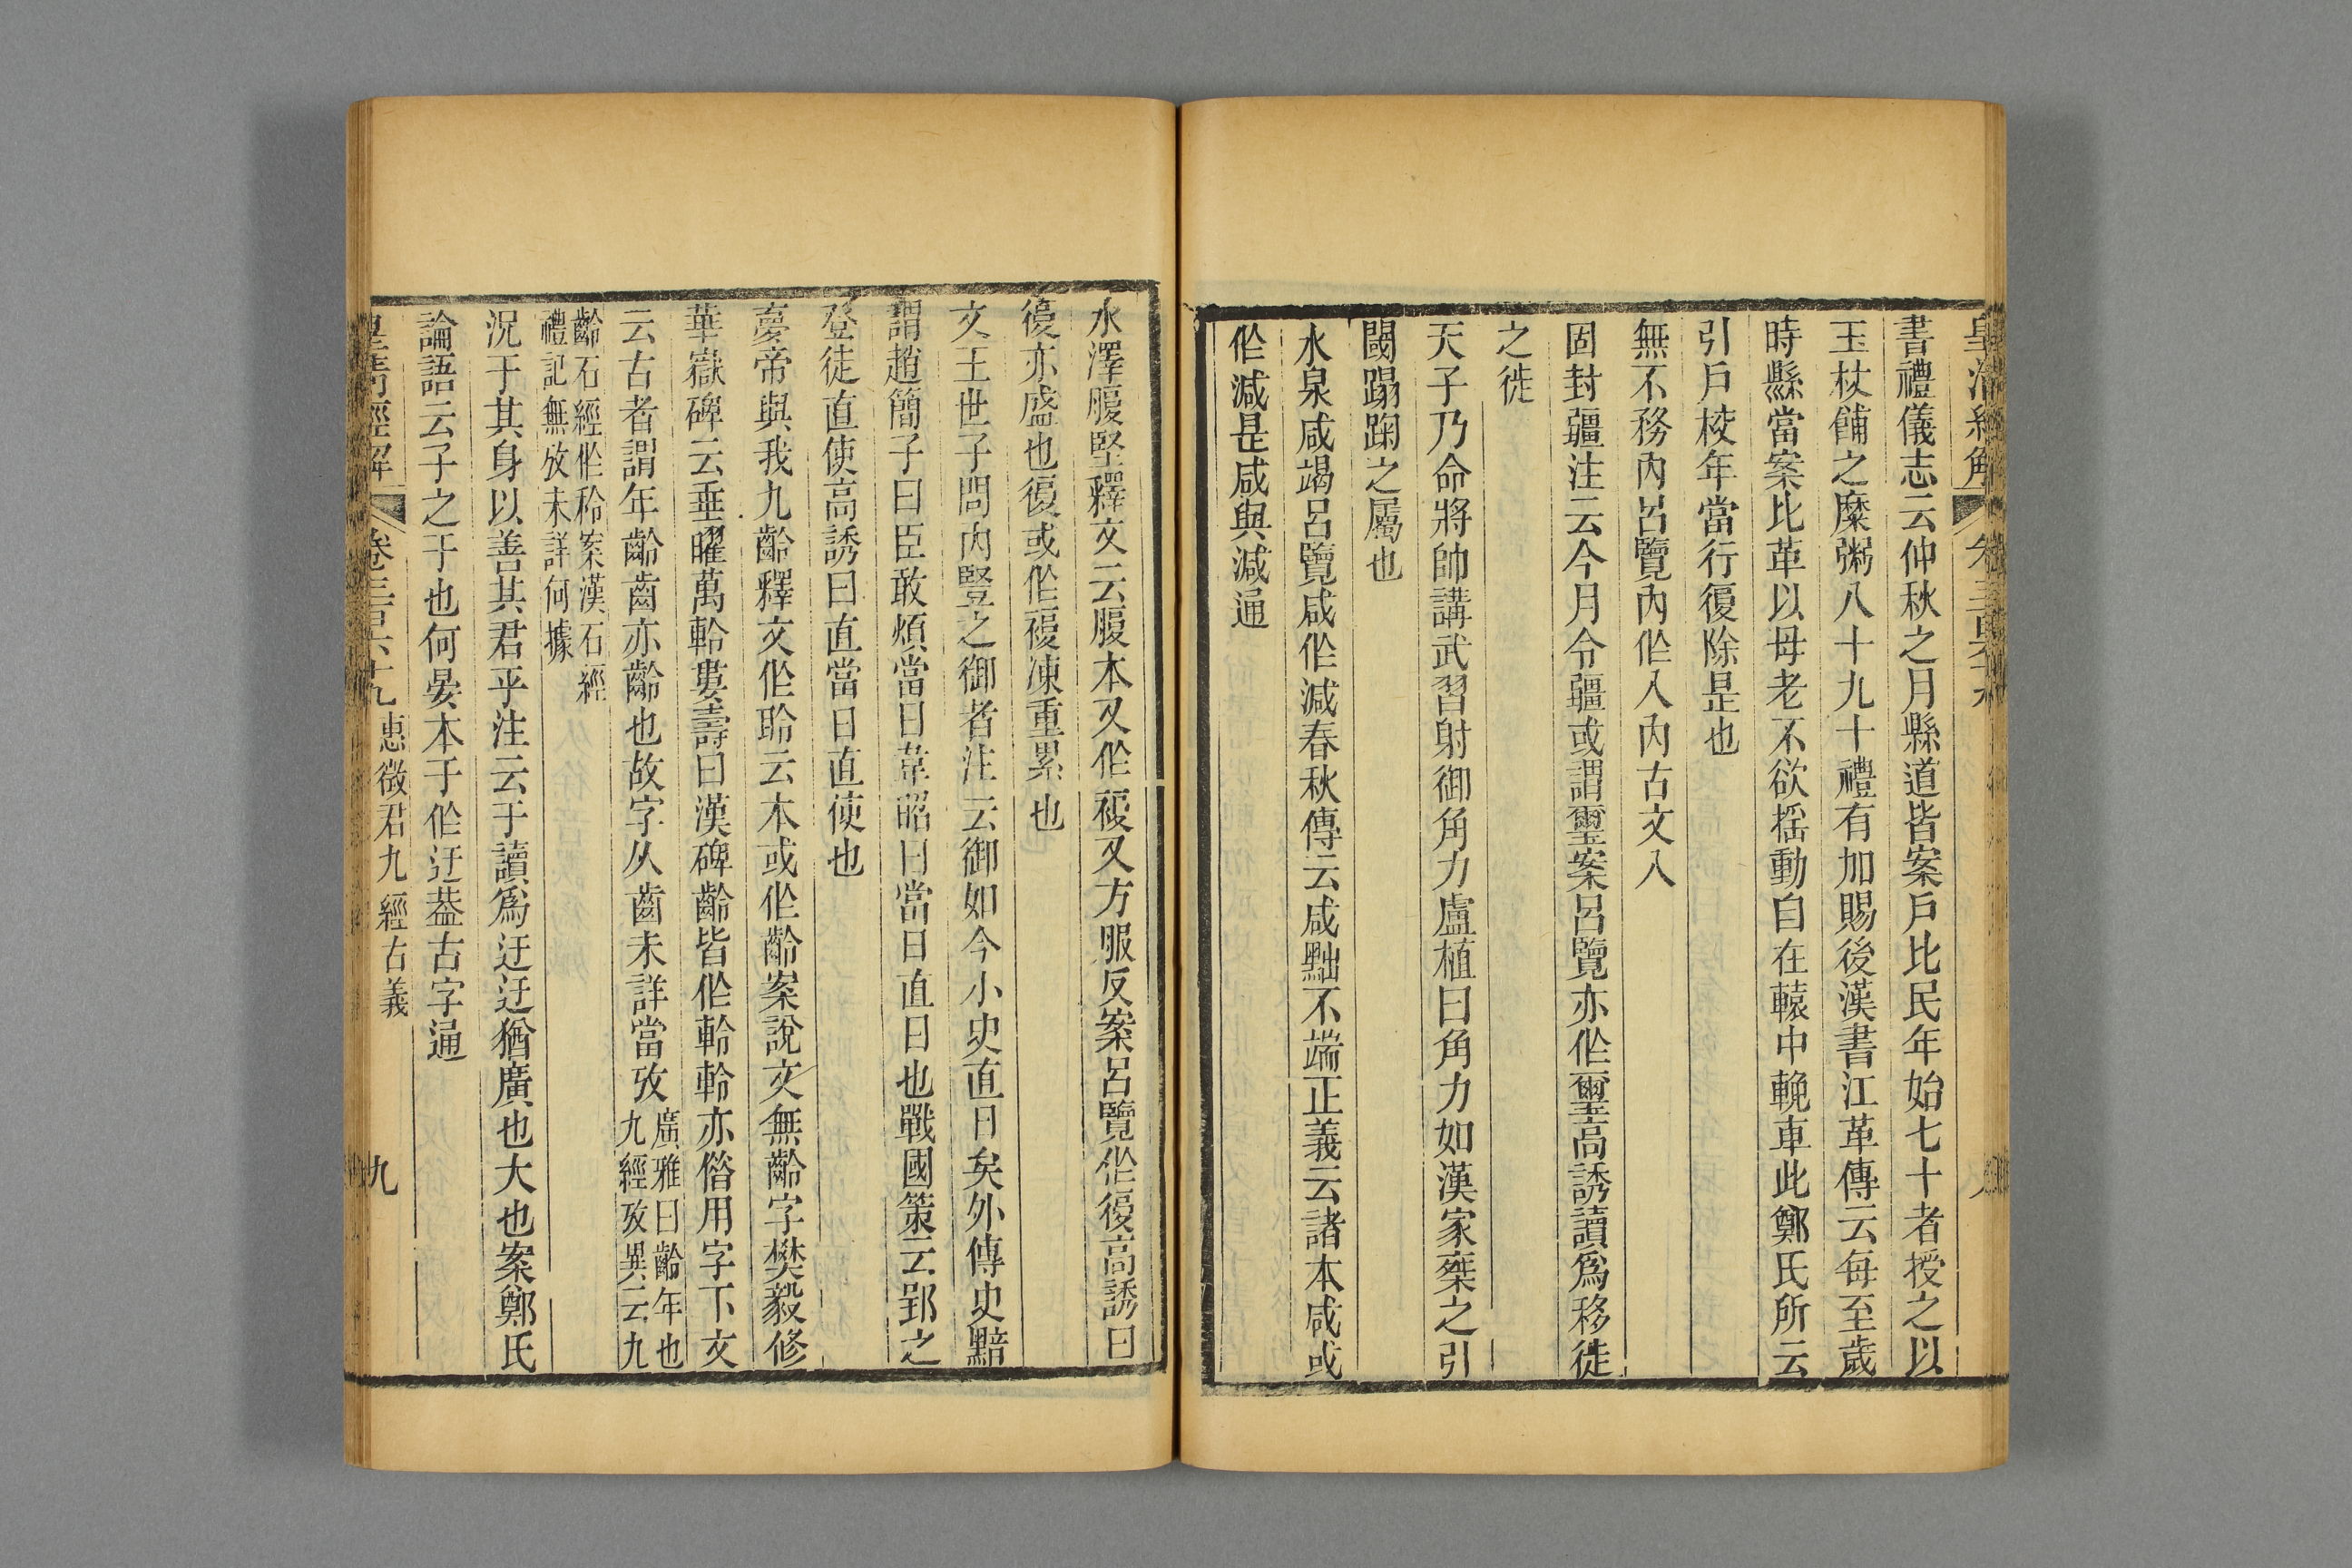 書禮儀志云仲秋之月縣道皆案戶比民年始七十者授之以
玉杖餔之糜粥八十九十禮有加賜後漢書江革傳云每至歲
時縣當案比革以母老不欲搖動自在轅中輓車此鄭氏所云
引戶校年當行復除是也
無不務內呂覽內作入內古文入
固封疆注云今月令疆或謂璽案呂覽亦作璽高誘讀爲移徙
之徙
天子乃命將帥講武習射御角力盧植曰角力如漢家乘之引
闟蹋踘之屬也
水泉咸竭呂覽咸作減春秋傳云咸黜不端正義云諸本咸或
作減是咸與減通
水澤腹堅釋文云腹本又作複又方服反案呂覽作復高誘曰
復亦盛也復或作複凍重累也
文王世子問內豎之御者注云御如今小史直日矣外傳史黯
謂趙簡子曰臣敢煩當日韋昭曰當日直日也戰國策云郢之
登徒直使高誘曰直當日直使也
夢帝與我九齡釋文作聆云本或作齡案說文無齡字樊毅修
華嶽碑云垂曜萬軨婁壽曰漢碑齡皆作軨軨亦偺用字下文
云古者謂年齡齒亦齡也故字从齒未詳當攷廣雅曰齡年也九經攷異云九
齡石經作秢案漢石經禮記無攷未詳何據
況于其身以善其君乎注云于讀爲迂迂猶廣也大也案鄭氏
論語云子之于也何晏本于作迂葢古字通
皇淸經解 卷三百六十九 惠徵君九經古義 九